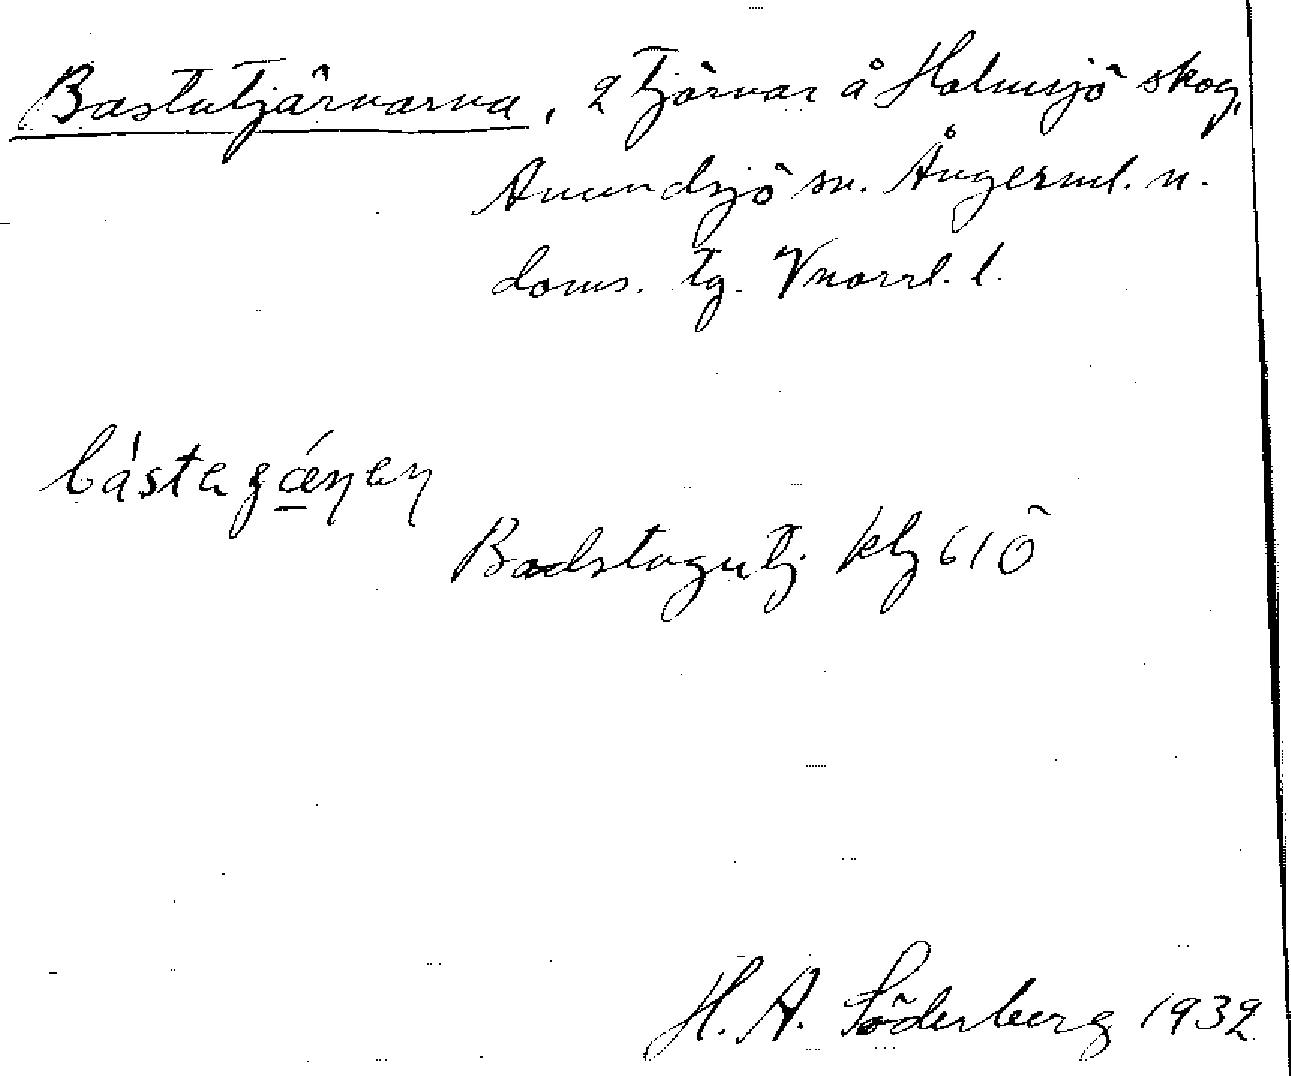 Bastutjärnarna, 2 tjärnar å Holmsjö skog,
Anundsjö sn. Ångerml. n.
doms. tg. Vnorrl. l.
Badstugutj. klj 61 Ö
H. A. Söderberg 1932